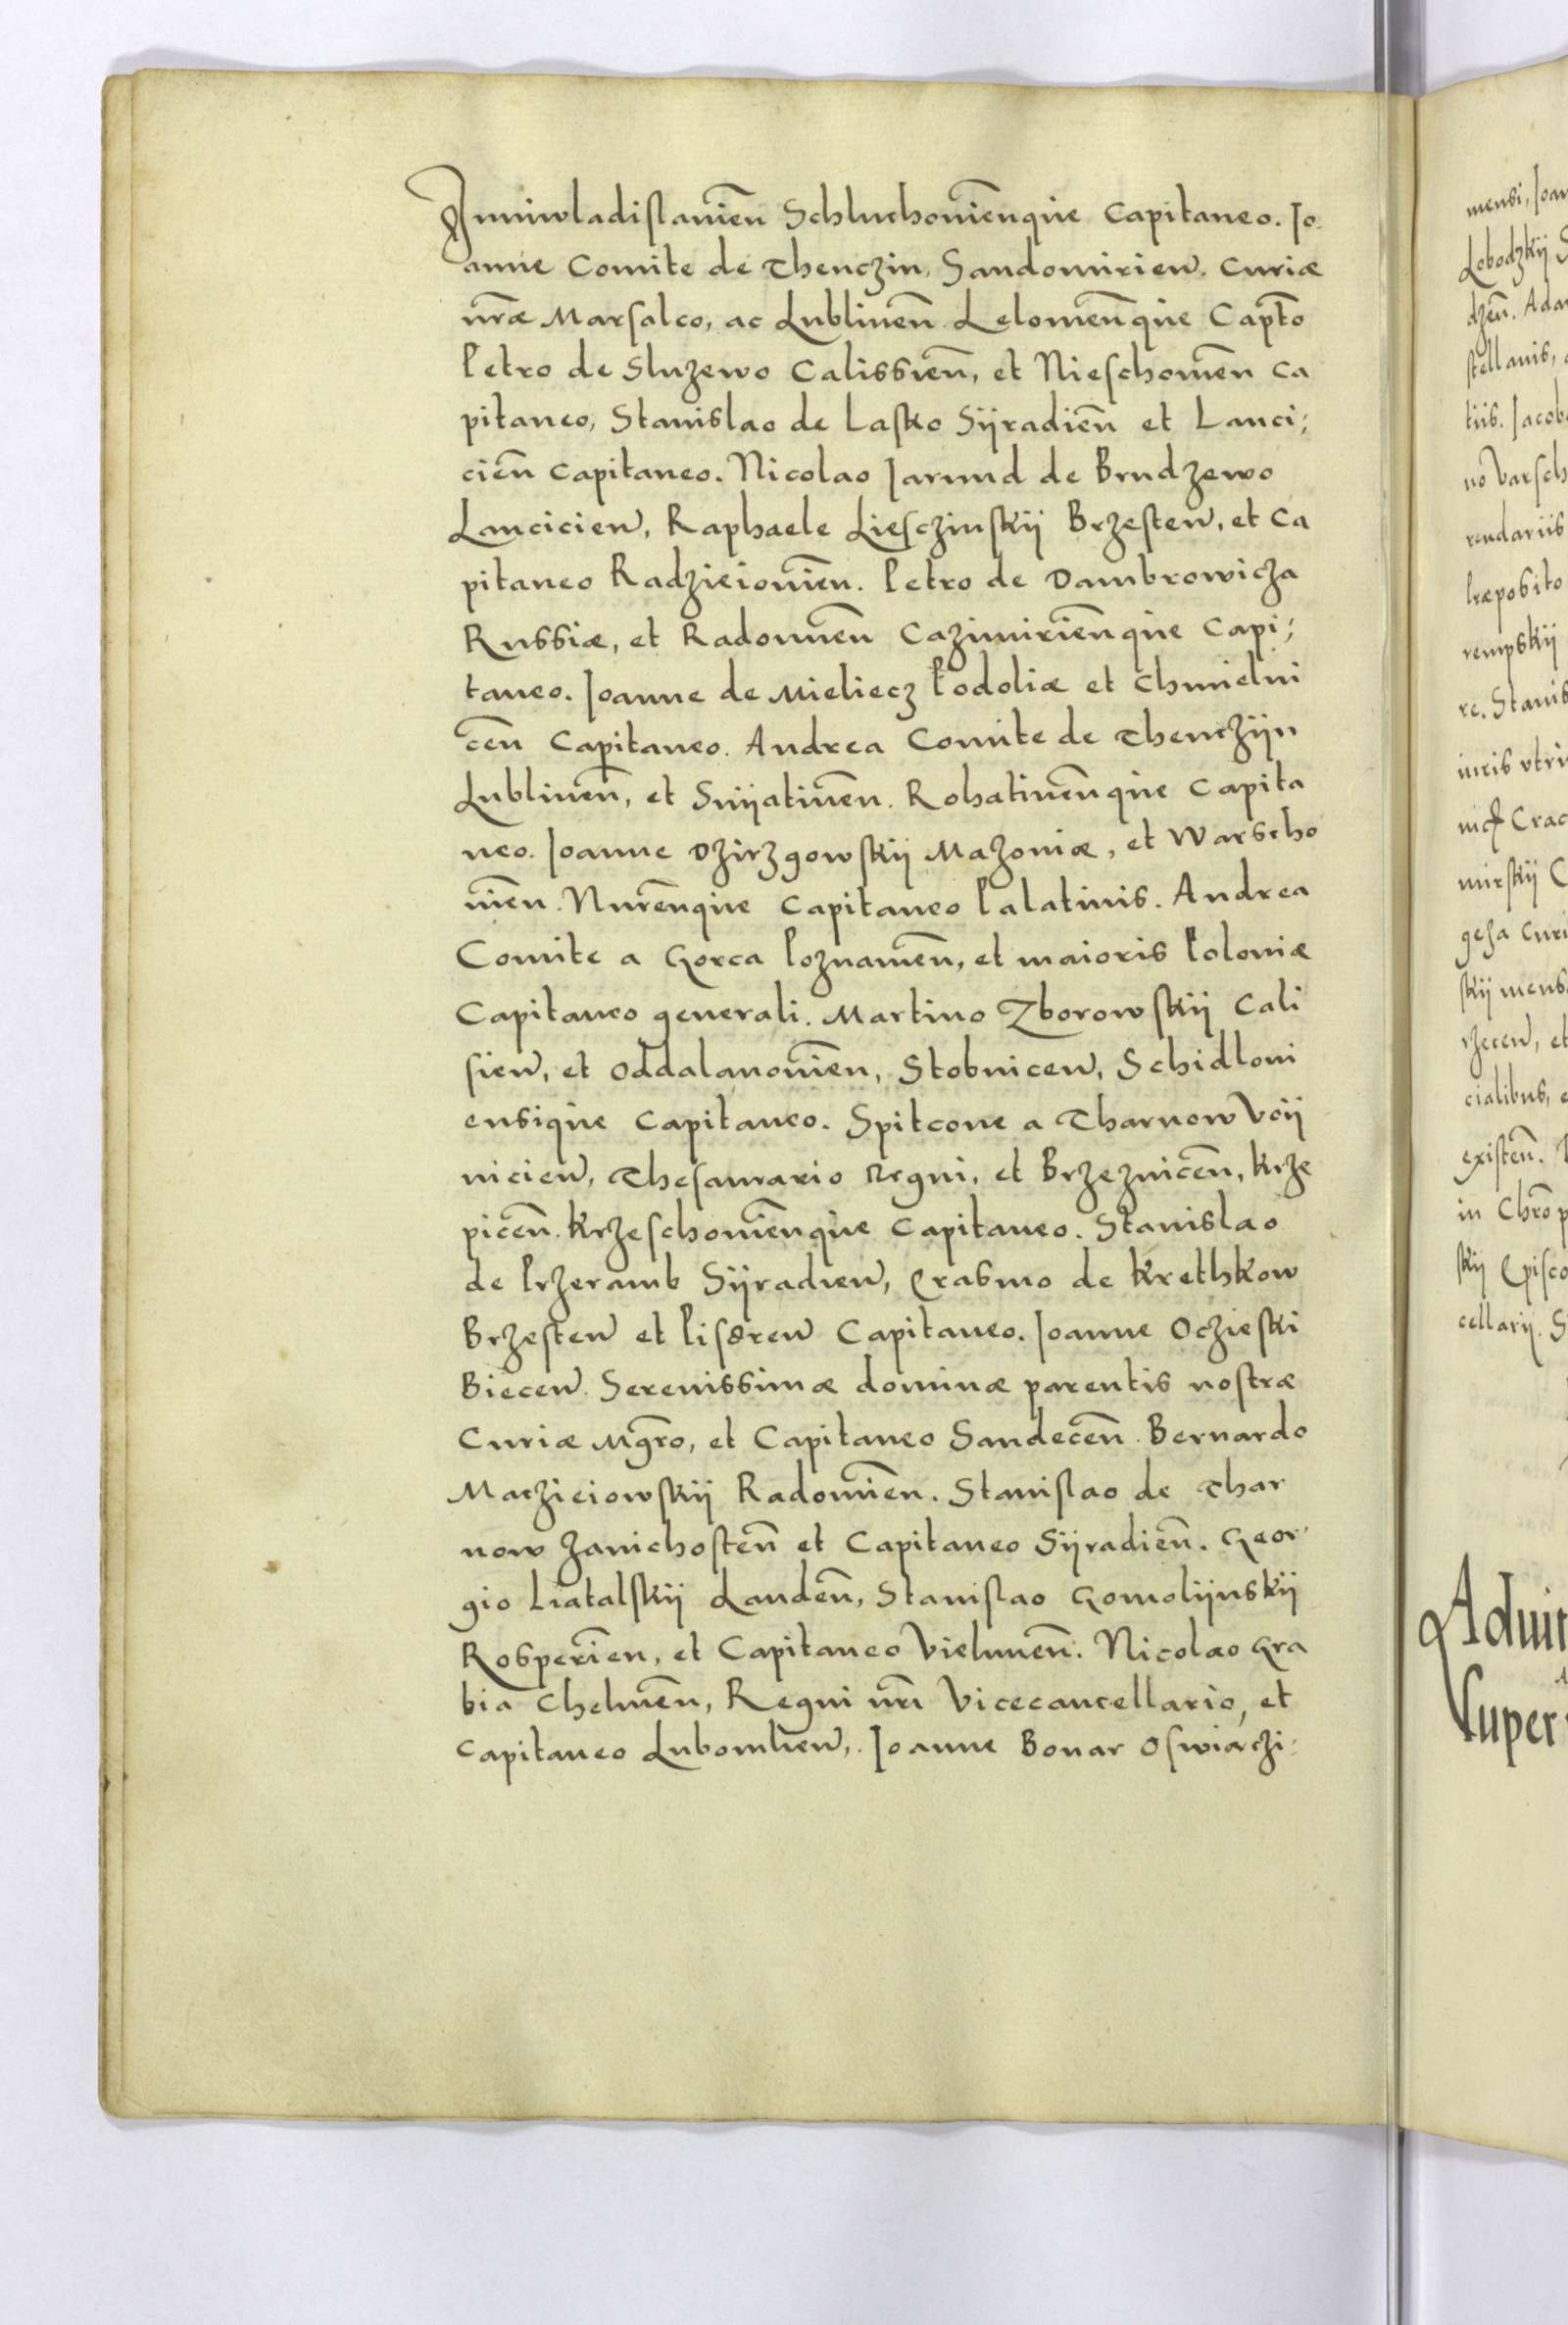 Juniwladislauien̄ Schluchouien̄que Capitaneo. Jo
anne Comite de Thenczin, Sandomirien. Curiæ
nr̄æ Marsalco, ac Lublinen̄ Lelouien̄que Capt̄o
Petro de Sluzewo Calissien̄, et Nieschouien̄ Ca
pitaneo, Stanislao de Lasko Sÿradien̄ et Lanci;
cien̄ Capitaneo. Nicolao Jarund de Brudzewo
Lancicien, Raphaele Liesczinskÿ Brzesten, et Ca
pitaneo Radzieiouien̄. Petro de Dambrowicza
Russiæ, et Radomien̄ Cazimirien̄que Capi;
taneo. Joanne de Mieliecz Podoliæ et Chmielni
cen̄ Capitaneo. Andrea Comite de Thenczÿn
Lublinen̄, et Snÿatinen̄. Rohatinen̄que Capita
neo. Joanne Dzirzgowskÿ Mazoniæ, et Warscho
uien̄. Nuren̄que Capitaneo Palatinis. Andrea
Comite a Gorca Poznanien̄, et maioris Poloniæ
Capitaneo generali. Martino Zborowskÿ Cali
sien, et Oddalanouien̄, Stobnicen, Schidloui
ensique Capitaneo. Spitcone a Tharnow Voÿ
nicien, Thesaurario Regni, et Brzeznicen̄, Krze
picen̄. Krzeschouien̄que Capitaneo. Stanislao
de Przeramb Sÿradien, Erasmo de Krethkow
Brzesten et Pisdren Capitaneo. Joanne Oczieski
Biecen. Serenissimæ dominæ parentis nostræ
Curiæ Mgr̄o, et Capitaneo Sandecen̄. Bernardo
Macziciowskÿ Radomien̄. Stanislao de Thar
now Zanichosten̄ et Capitaneo Sÿradien̄. Geor
gio Liatalskÿ Landen̄, Stanislao Gomolÿnskÿ
Rosperien̄, et Capitaneo Vielunen̄. Nicolao Gra
bia Chelmen̄, Regni nr̄i Vicecancellario, et
Capitaneo Lubomlien,. Joanne Bonar Oswiaczi:
mensi, Joan
Lobodzkÿ S
dzen̄. Ada
stellanis,
tiis. Jacob
no Varsch
rendariis
Præposito
rempskÿ
re. Stanis
iuris vtri
Crac
mirskÿ C
geza Curi
skÿ mens
rzecen, et
cialibus, e
existen̄.
in Chr̄o p
skÿ Episco
cellarÿ. S
Aduit
Super